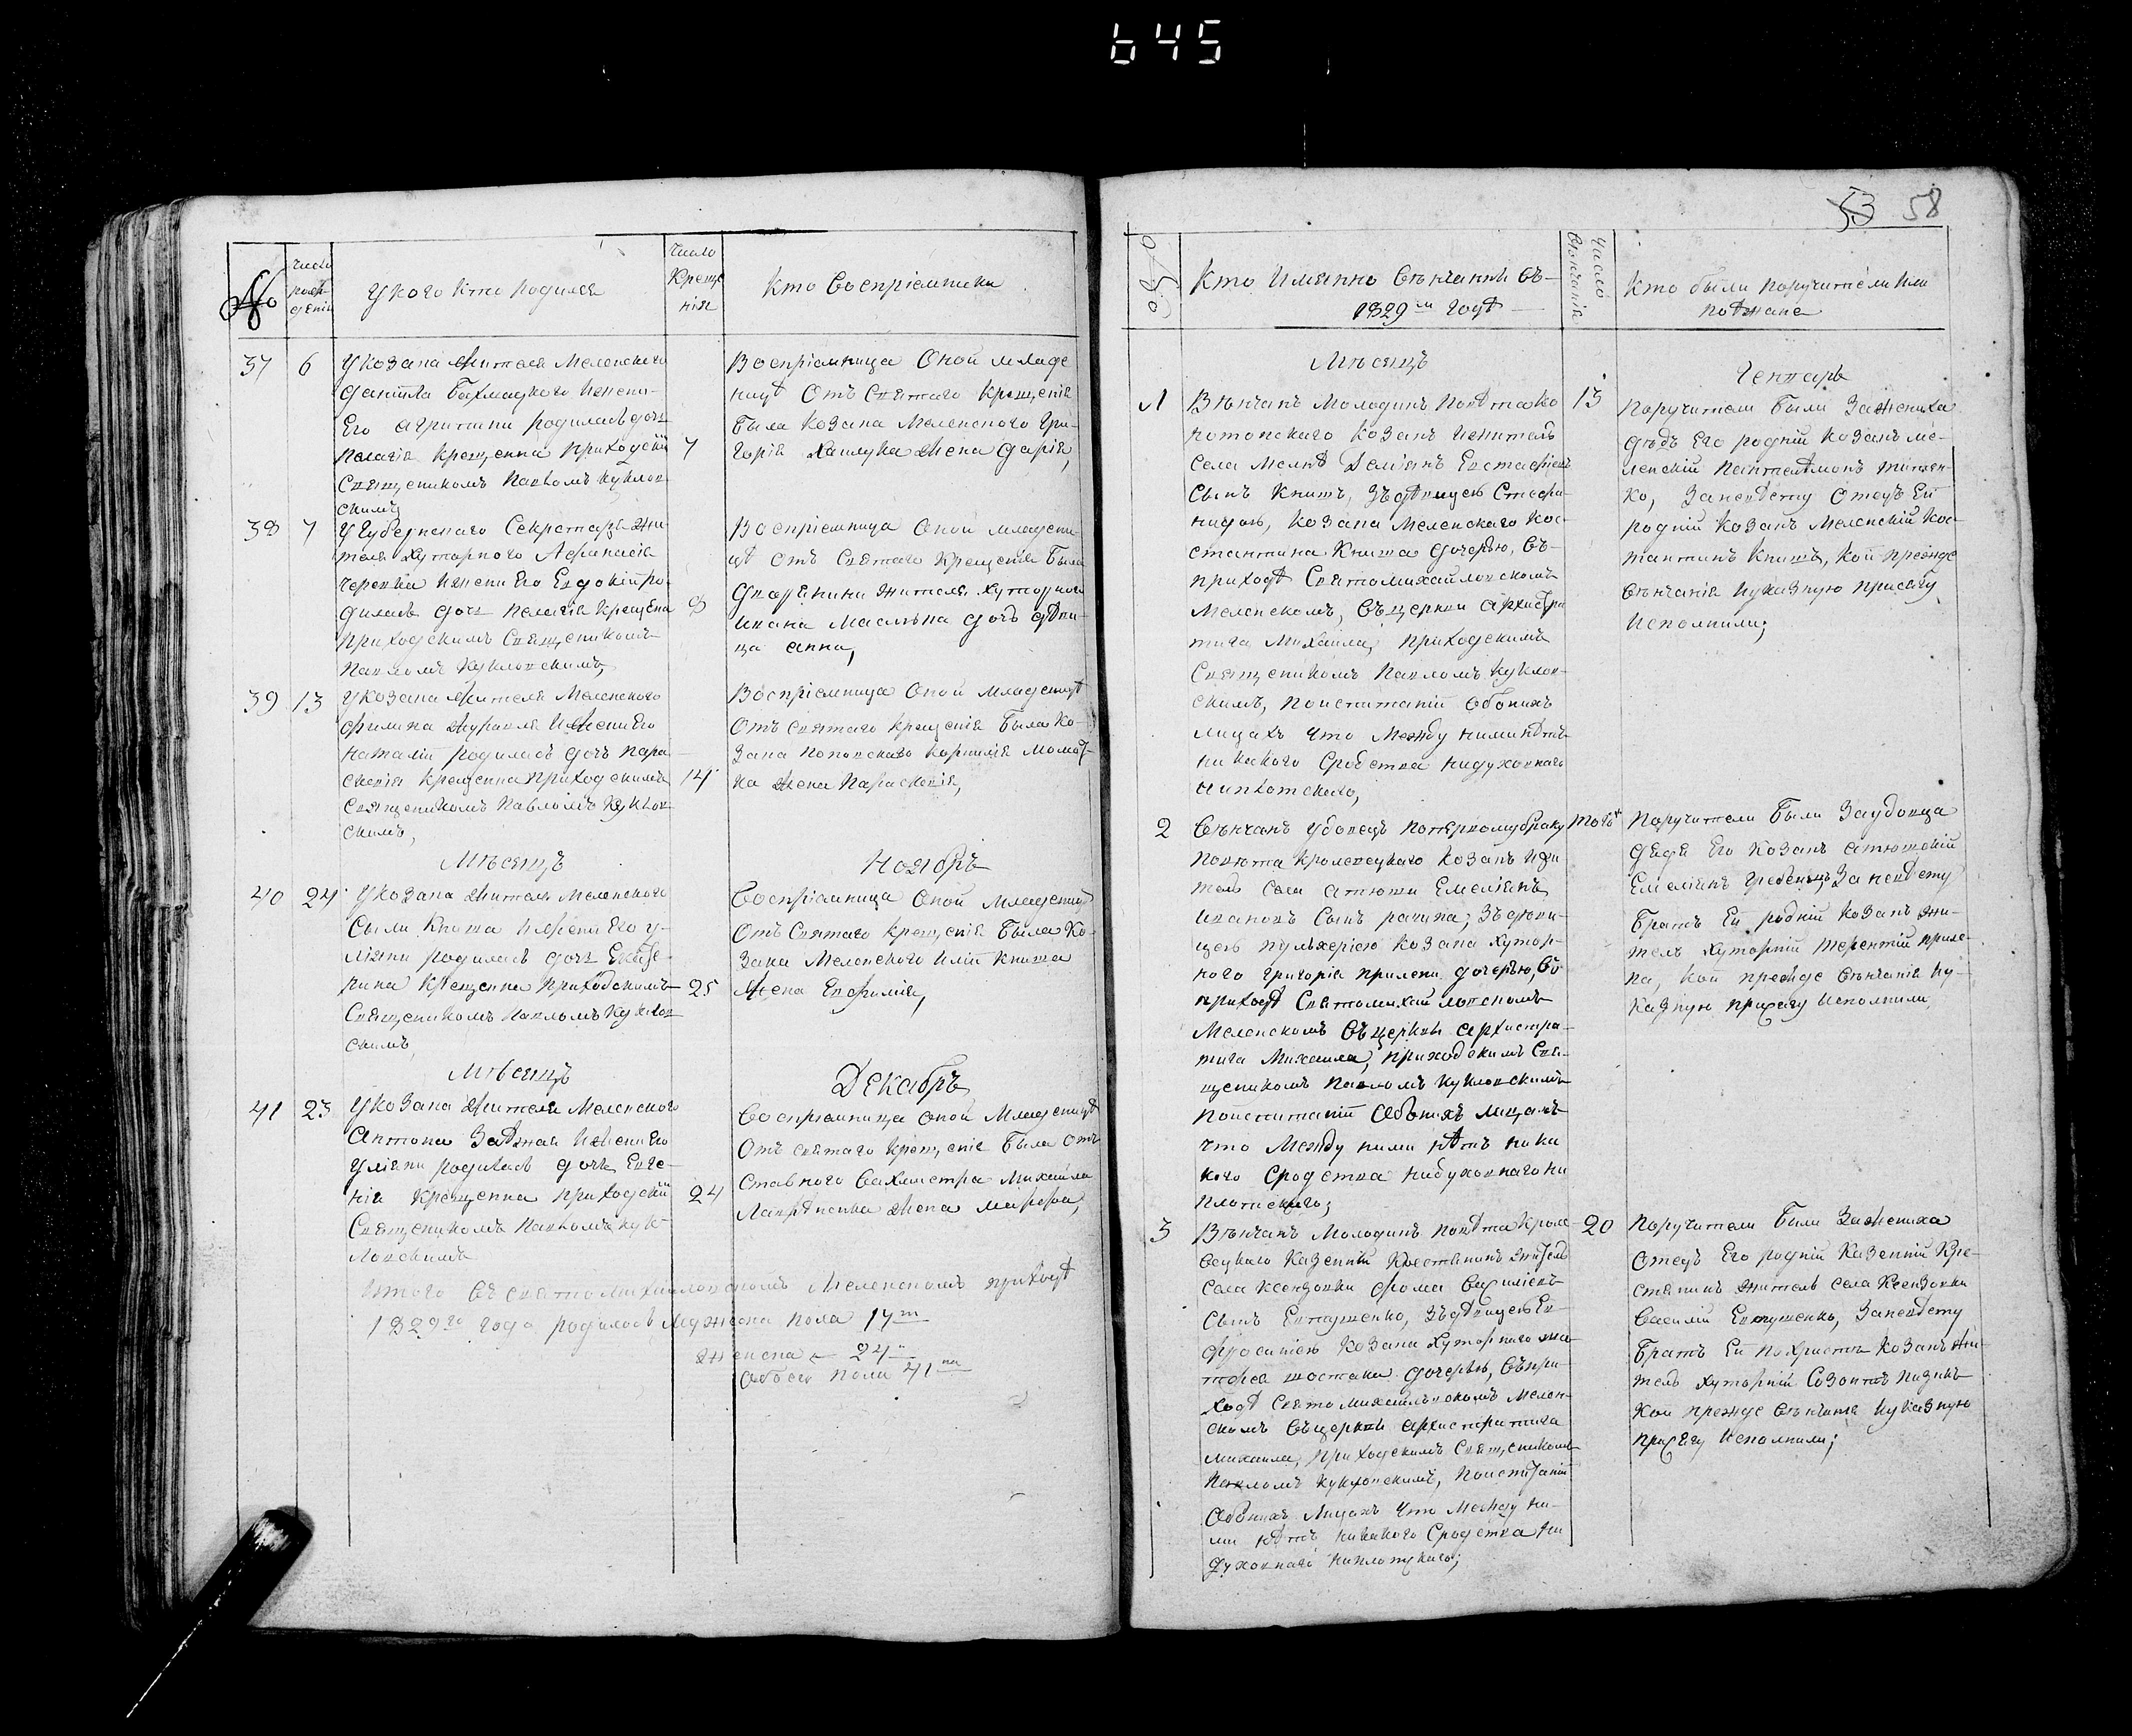 645
№
Число рожденія
У кого кто родился
Число Крещенія
Кто воспріемники
37
6
У козака жителя Меленского
Даніила Бахмацкого и жени
Его Агрипини родилась дочь
Пелагія крещенна приходскім
7
Священикомъ Павломъ Куклов
скимъ
Воспріемница Оной младе
ницѣ Отъ Святаго Крещенія
Была козака Меленского Гри-
горія жена Дарія,
38
7
У Губернского Секретаря жи
теля Хуторного Афанасія
и жени Его Евдокіи ро-
дилась дочь Пелагія Крещена
8
Приходскимъ Священикомъ
Павломъ Кукловскимъ,
Воспріемница Оной младени
цѣ Отъ Святаго Крещенія Была
жителя Хуторного
Ивана дочь дѣви-
ца Анна,
39
13
У козака жителя Меленского
Филипа Журавля и жени Его
Наталіи родилась дочь Пара
скевія крещенна приходскимъ
14
Священикомъ Павломъ Куклов
скимъ,
Воспріемница Оной Младеницѣ
Отъ Святаго Крещенія Была ко-
зака Поповского Корнилія
ка жена Параскевія,
Мѣсяцъ
Ноябръ
40
24
У козака жителя Меленского
Сыли Книша и жени Его У-
ліяни родилась дочь Екате-
рина крещенна приходскимъ
25
Священикомъ Павломъ Куклов
скимъ
Воспріемница Оной Младеницѣ
Отъ Святаго Крещенія Была Ко-
зака Меленского Иліи Книша
жена Евфимія,
Мѣсяцъ
Декабръ
41
23
У козака жителя Меленского
Антона и жени Его
Уліяни родилась дочь Евге-
нія крещенна приходскім
24
Священикомъ Павломъ Кук-
ловскимъ
Воспріемница Оной Младеницѣ
Отъ Святаго Крещенія Была Отъ
ставного Вахмистра Михайла
Лавріненка жена Марфа,
Итого въ Святомихайловскомъ Меленскомъ приходѣ
1829го года родилось Мужеска пола 17ть
Женска — 24
Обоего пола 41на
53 58
№
Кто Имянно Вѣнчанни въ
1829м годѣ
Число Вѣнчанія
Кто были поручители или
поѣзжане
Мѣсяцъ
Генварь
1
Вѣнчанъ Молодикъ Повѣта Ко
13
нотопского Козакъ и житель
села Меленѣ Деміянъ Евстафіевъ
Сынъ Книшъ, Зъ дѣвицею Стефа-
нидою, Козака Меленскаго Кос-
стантина Книша дочерью, Въ
приходѣ Святомихайловскомъ
Меленскомъ, Въ церкви Архистра
тига Михаила, приходскимъ
Священикомъ Павломъ Куклов-
скимъ, По испитаніи Обоихъ
лицахъ что Между ними нѣтъ
никакого Сродства ни духовнаго
ни плотского,
Поручители Были За жениха
дѣдъ Его родній Козакъ Ме-
ленскій Пантелѣмонъ
ко, За невѣсту Отецъ Еи
родній Козакъ Меленскій Кос-
тантинъ Книшъ, Кои прежде
Вѣнчанія и указную присягу
Исполнили;
2
Вѣнчанъ Удовецъ по первому браку
тогожъ
Повѣта Кролевецкаго Козакъ и жи
тель села Атюши Емеліянъ
Ивановъ Сынъ Рачина; Зъ дѣви-
цею Пульхеріею Козака Хутор-
ного Григорія Прилепи дочерью, Въ
приходѣ Святомихайловскомъ
Меленскомъ Въ церкви Архистра-
тига Михаила, приходскимъ Свя-
щеникомъ Павломъ Кукловскимъ
По испитаніи Обоихъ лицахъ
что Между ними нѣтъ ника
кого Сродства ни духовнаго ни
плотского;
Поручители Были За удовца
дядя Его Козакъ Атюшскій
Емеліянъ Гребенецъ За невѣсту
Братъ Еи родній Козакъ жи-
тель Хуторній Терентій Приле-
па, Кои прежде Вѣнчанія и у-
казную присягу Исполнили
3
Вѣнчанъ Молодикъ Повѣта Кроле
20
вецкаго Казенній Крестянинъ житель
села Ксендзовки Фома Василіевъ
Сынъ Евтушенко, Зъ дѣвицею Ев-
фросиніею Козака Хуторного Ма-
тфея Шостака дочерью, Въ при-
ходѣ Святомихайловскомъ Мелен-
скомъ Въ церкви Архистратига
Михаила, приходскимъ Священикомъ
Павломъ Кукловскимъ, По испитаніи
Обоихъ Лицахъ Что Между ни-
ми нѣтъ никакого Сродства ни
духовнаго ни плотскаго;
Поручители Были За жениха
Отецъ Его родній Казенній Кре-
стянинъ житель села Ксендзовки
Василій Евтушенко, За невѣсту
Братъ Еи по Христѣ Козакъ жи-
тель Хуторній Созонтъ
Кои прежде Вѣнчанія и указную
присягу Исполнили;